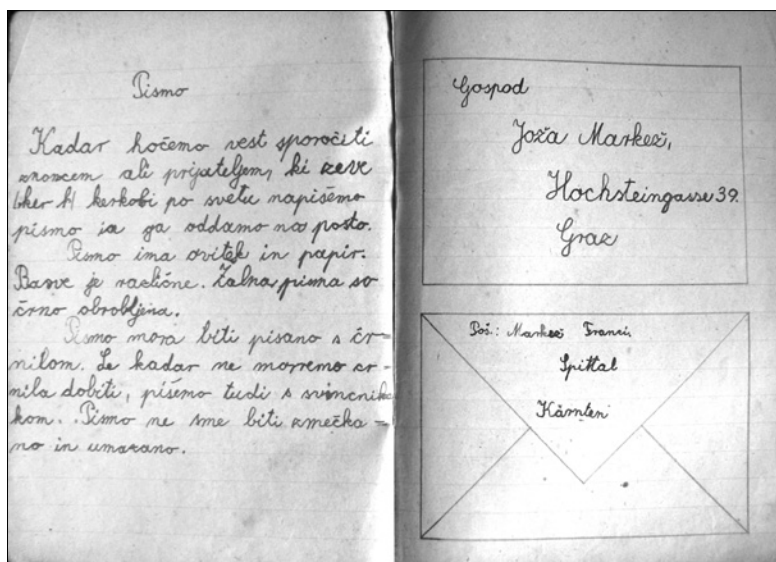 Pismo
Kadar hočemo vest sporočiti
znancem ali prijateljem, ki
kerkobi po svetu napišemo
pismo in ga oddamo na pošto.
Pismo ima ovitek in papir.
Barve je različne. Žalna pisma so
črno obrobljena.
Pismo mora biti pisano s čr=
nilom. Le kadar ne moremo čr-
nila dobiti, pišemo tudi s
kom. Pismo ne sme biti zmečka=
no in umazano.
Gospod
Joža Markež,
Hochsteingasse 39.
Graz
Poš.: Markež Franci,
Spittal
Kärnten